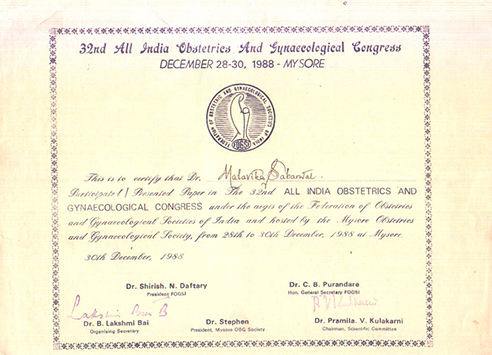 32nd All India Obstetrics And Gynaecological Congress
DECEMBER 28-30, 1988 - MYSORE
FEDERATION OF OBSTETRIC AND GYNAECOLOGICAL SOCIETIES OF INDIA
FOGSI
This is to certify that Dr. Malavika Sabarwal
Participated / Presented Paper in The 32nd ALL INDIA OBSTETRICS AND
GYNAECOLOGICAL CONGRESS under the aegis of the Federation of Obstetrics
and Gynaecological Societies of India and hosted by the Mysore Obstetrics
and Gynaecological Society, from 28th to 30th December, 1988 at Mysore.
30th December, 1988
Dr. Shirish. N. Daftary
President FOGSI
Dr. C. B. Purandare
Hon. General Secretary FOGSI
Lakshmi Bai B
Dr. B. Lakshmi Bai
Organising Secretary
Dr. Stephen
President, Mysore OBG Society
Dr. Pramila. V. Kulakarni
Chairman, Scientific Committee